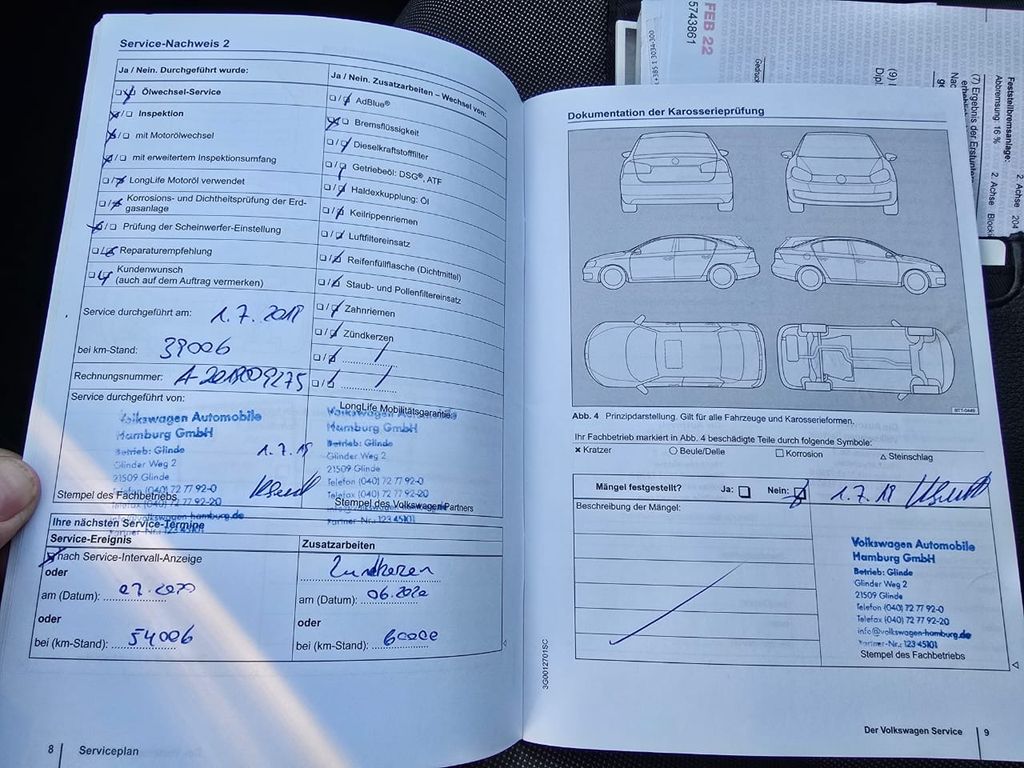 Service-Nachweis 2
Ja / Nein. Durchgeführt wurde:
Ölwechsel-Service
Inspektion
mit Motorölwechsel
mit erweitertem Inspektionsumfang
LongLife Motoröl verwendet
Korrosions- und Dichtheitsprüfung der Erd-
gasanlage
Prüfung der Scheinwerfer-Einstellung
Reparaturempfehlung
Kundenwunsch
(auch auf dem Auftrag vermerken)
Service durchgeführt am: 1.7.2018
bei km-Stand: 39006
Rechnungsnummer:
Service durchgeführt von:
Volkswagen Automobile
Hamburg GmbH
Betrieb: Glinde
Glinder Weg 2
21509 Glinde
Telefon (040) 72 77 92-0
1.7.18
Stempel des Fachbetriebs
Ja / Nein. Zusatzarbeiten – Wechsel von:
AdBlue®
Bremsflüssigkeit
Dieselkraftstofffilter
Getriebeöl: DSG®, ATF
Haldexkupplung: Öl
Keilrippenriemen
Luftfiltereinsatz
Reifenfüllflasche (Dichtmittel)
Staub- und Pollenfiltereinsatz
Zahnriemen
Zündkerzen
LongLife Mobilitätsgarantie
Volkswagen Automobile
Hamburg GmbH
Betrieb: Glinde
Glinder Weg 2
21509 Glinde
Telefon (040) 72 77 92-0
Telefax (040) 72 77 92-20
Stempel des Volkswagen Partners
Partner-Nr.: 123 45101
Ihre nächsten Service-Termine
Service-Ereignis
nach Service-Intervall-Anzeige
oder
am (Datum): 07.2020
oder
bei (km-Stand): 54006
Zusatzarbeiten
Zündkerzen
am (Datum): 06.2020
oder
bei (km-Stand): 60000
8 Serviceplan
3G0012701SC
Dokumentation der Karosserieprüfung
Abb. 4 Prinzipdarstellung. Gilt für alle Fahrzeuge und Karosserieformen.
Ihr Fachbetrieb markiert in Abb. 4 beschädigte Teile durch folgende Symbole:
Kratzer
Beule/Delle
Korrosion
Steinschlag
Mängel festgestellt? Ja: Nein: 1.7.18
Beschreibung der Mängel:
Volkswagen Automobile
Hamburg GmbH
Betrieb: Glinde
Glinder Weg 2
21509 Glinde
Telefon (040) 72 77 92-0
Telefax (040) 72 77 92-20
info@volkswagen-hamburg.de
Partner-Nr.: 123 45101
Stempel des Fachbetriebs
Der Volkswagen Service 9
FEB 22
5743861
Feststellbremsanlage:
Abbremsung: 16 %
2. Achse 204